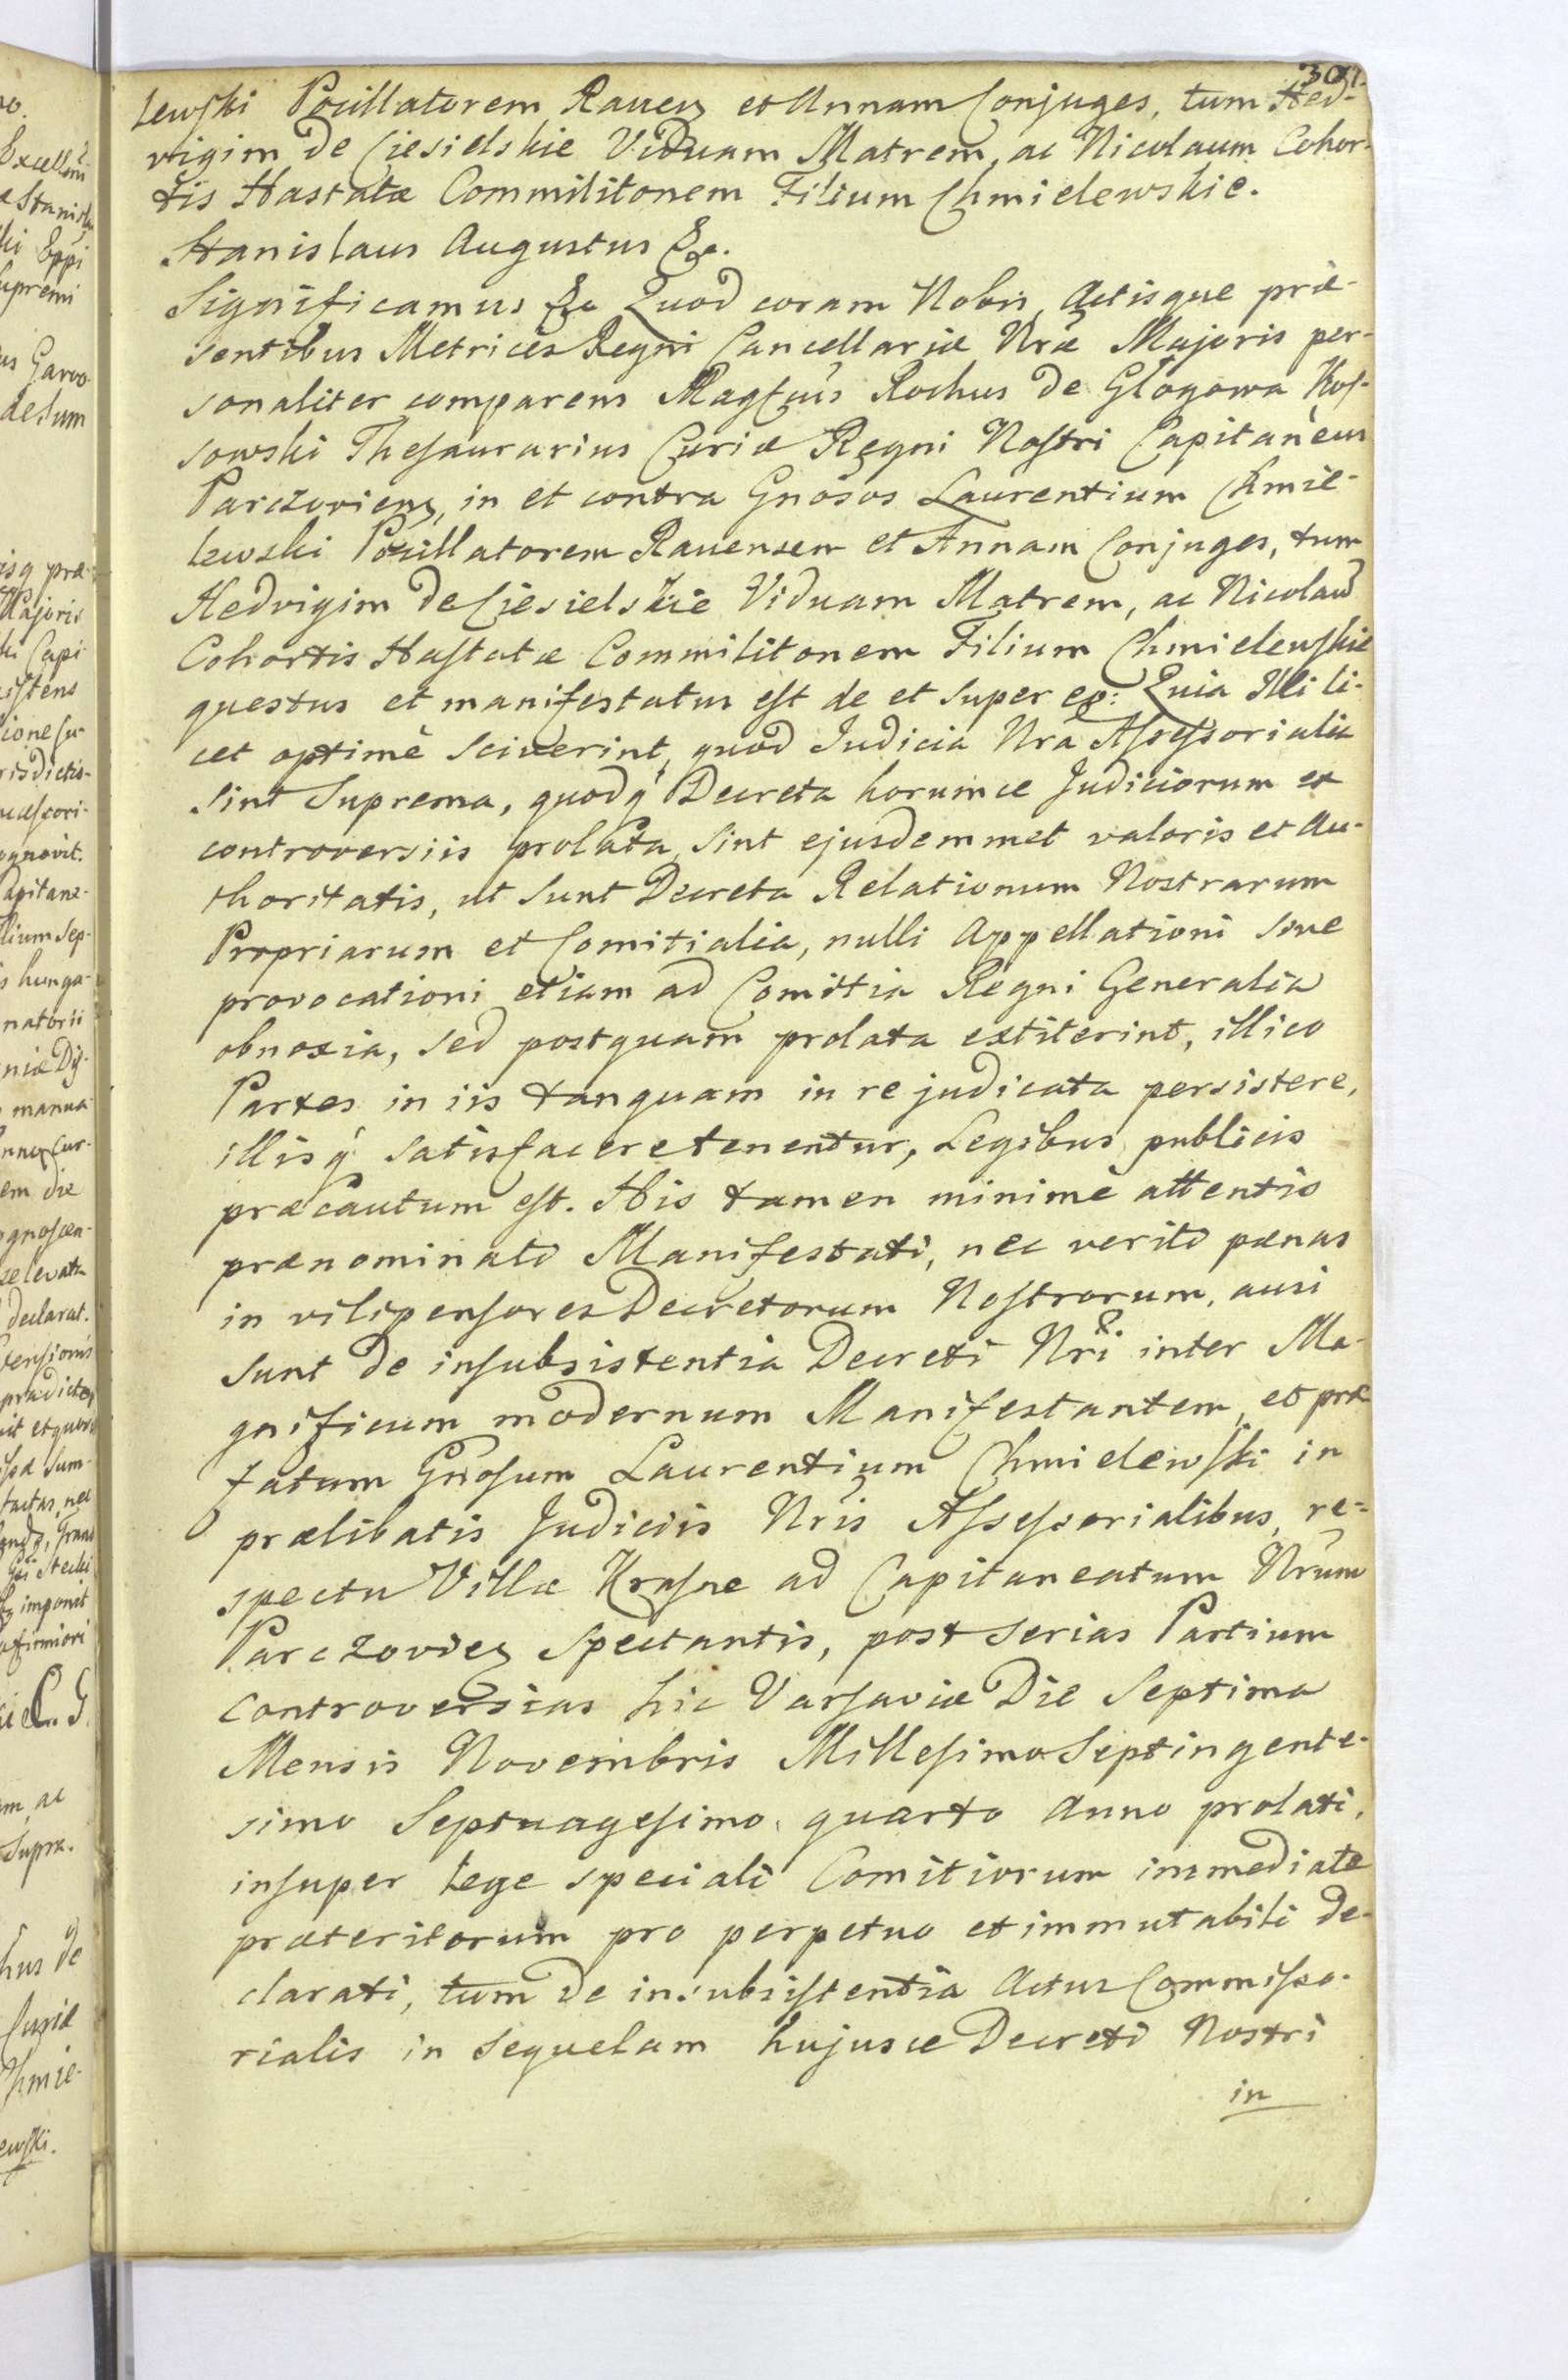 301
lewski Pocillatorem Ravens et Annam Conjuges, tum Hed-
vigim de Ciesielskie Viduam Matrem, ac Nicolaum Cohor-
tis Hastatæ Commilitonem Filium Chmielewskie.
Stanislaus Augustus &c.
Significamus &c Quod coram Nobis, Actisque præ-
sentibus Metrices Regni Cancellariæ Nræ Majoris per-
sonaliter comparens Magfcus Rochus de Głogowa Kos-
sowski Thesaurarius Curiæ Regni Nostri Capitaneus
Parczoviens, in et contra Gnosos Laurentium Chmie-
lewski Pocillatorem Ravensem et Annam Conjuges, tum
Hedvigim de Ciesielskie Viduam Matrem, ac Nicolaū
Cohortis Hastatæ Commilitonem Filium Chmielewskie
questus et manifestatus est de et super eo: Quia Illi li-
cet optimè sciverint, quod Judicia Nra Assessorialia
sint Suprema, quodq Decreta horumce Judiciorum ex
controversiis prolata, sint ejusdemmet valoris et Au-
thoritatis, ut sunt Decreta Relationum Nostrarum
Propriarum et Comitialia, nulli Appellationi sive
provocationi etiam ad Comitia Regni Generalia
obnoxia, sed postquam prolata extiterint, illico
Partes in iis tanquam in re judicata persistere,
illisq satisfacere tenentur, Legibus publicis
præcautum est. His tamen minimè attentis
prænominati Manifestati, nec veriti pænas
in vilipensores Decretorum Nostrorum, ausi
sunt de insubsistentia Decreti Nri inter Ma-
gnificum modernum Manifestantem, et præ
fatum Gnosum Laurentium Chmielewski in
prælibatis Judiciis Nris Assessorialibus, re-
spectu Villæ Krasne ad Capitaneatum Nrum
Parczovies spectantis, post serias Partium
controversias hic Varsaviæ Die Septima
Mensis Novembris Millesimo Septingente-
simo Septuagesimo quarto Anno prolati,
insuper lege speciali Comitiorum immediate
præteritorum pro perpetuo et immutabili de-
clarati, tum de insubsistentia Actus Commisso-
rialis in sequelam hujusce Decreti Nostri
in